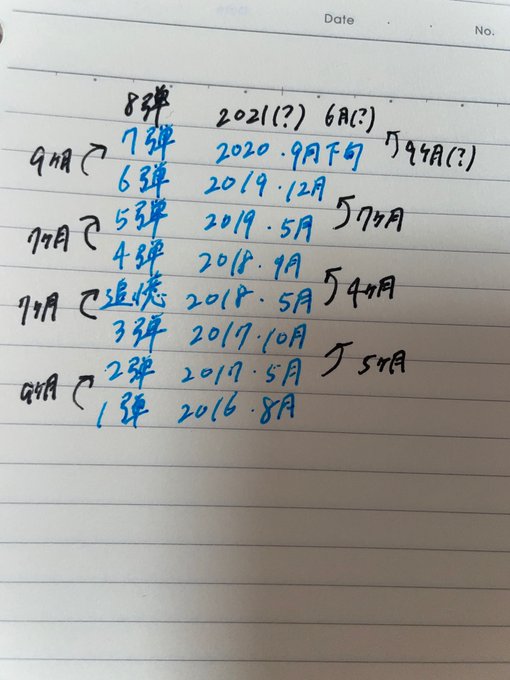 Date
No.
8弾 2021(?) 6月(?)
7弾 2020.9月下旬
9ヶ月(?)
9ヶ月
6弾 2019.12月
5弾 2019.5月
7ヶ月
7ヶ月
4弾 2018.9月
追憶 2018.5月
4ヶ月
7ヶ月
3弾 2017.10月
2弾 2017.5月
5ヶ月
9ヶ月
1弾 2016.8月